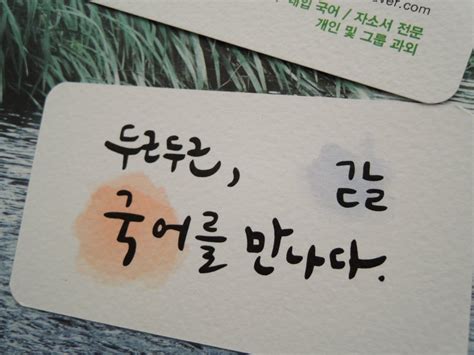 ver.com
대입 국어 / 자소서 전문
개인 및 그룹 과외
두근두근,
국어를 만나다.